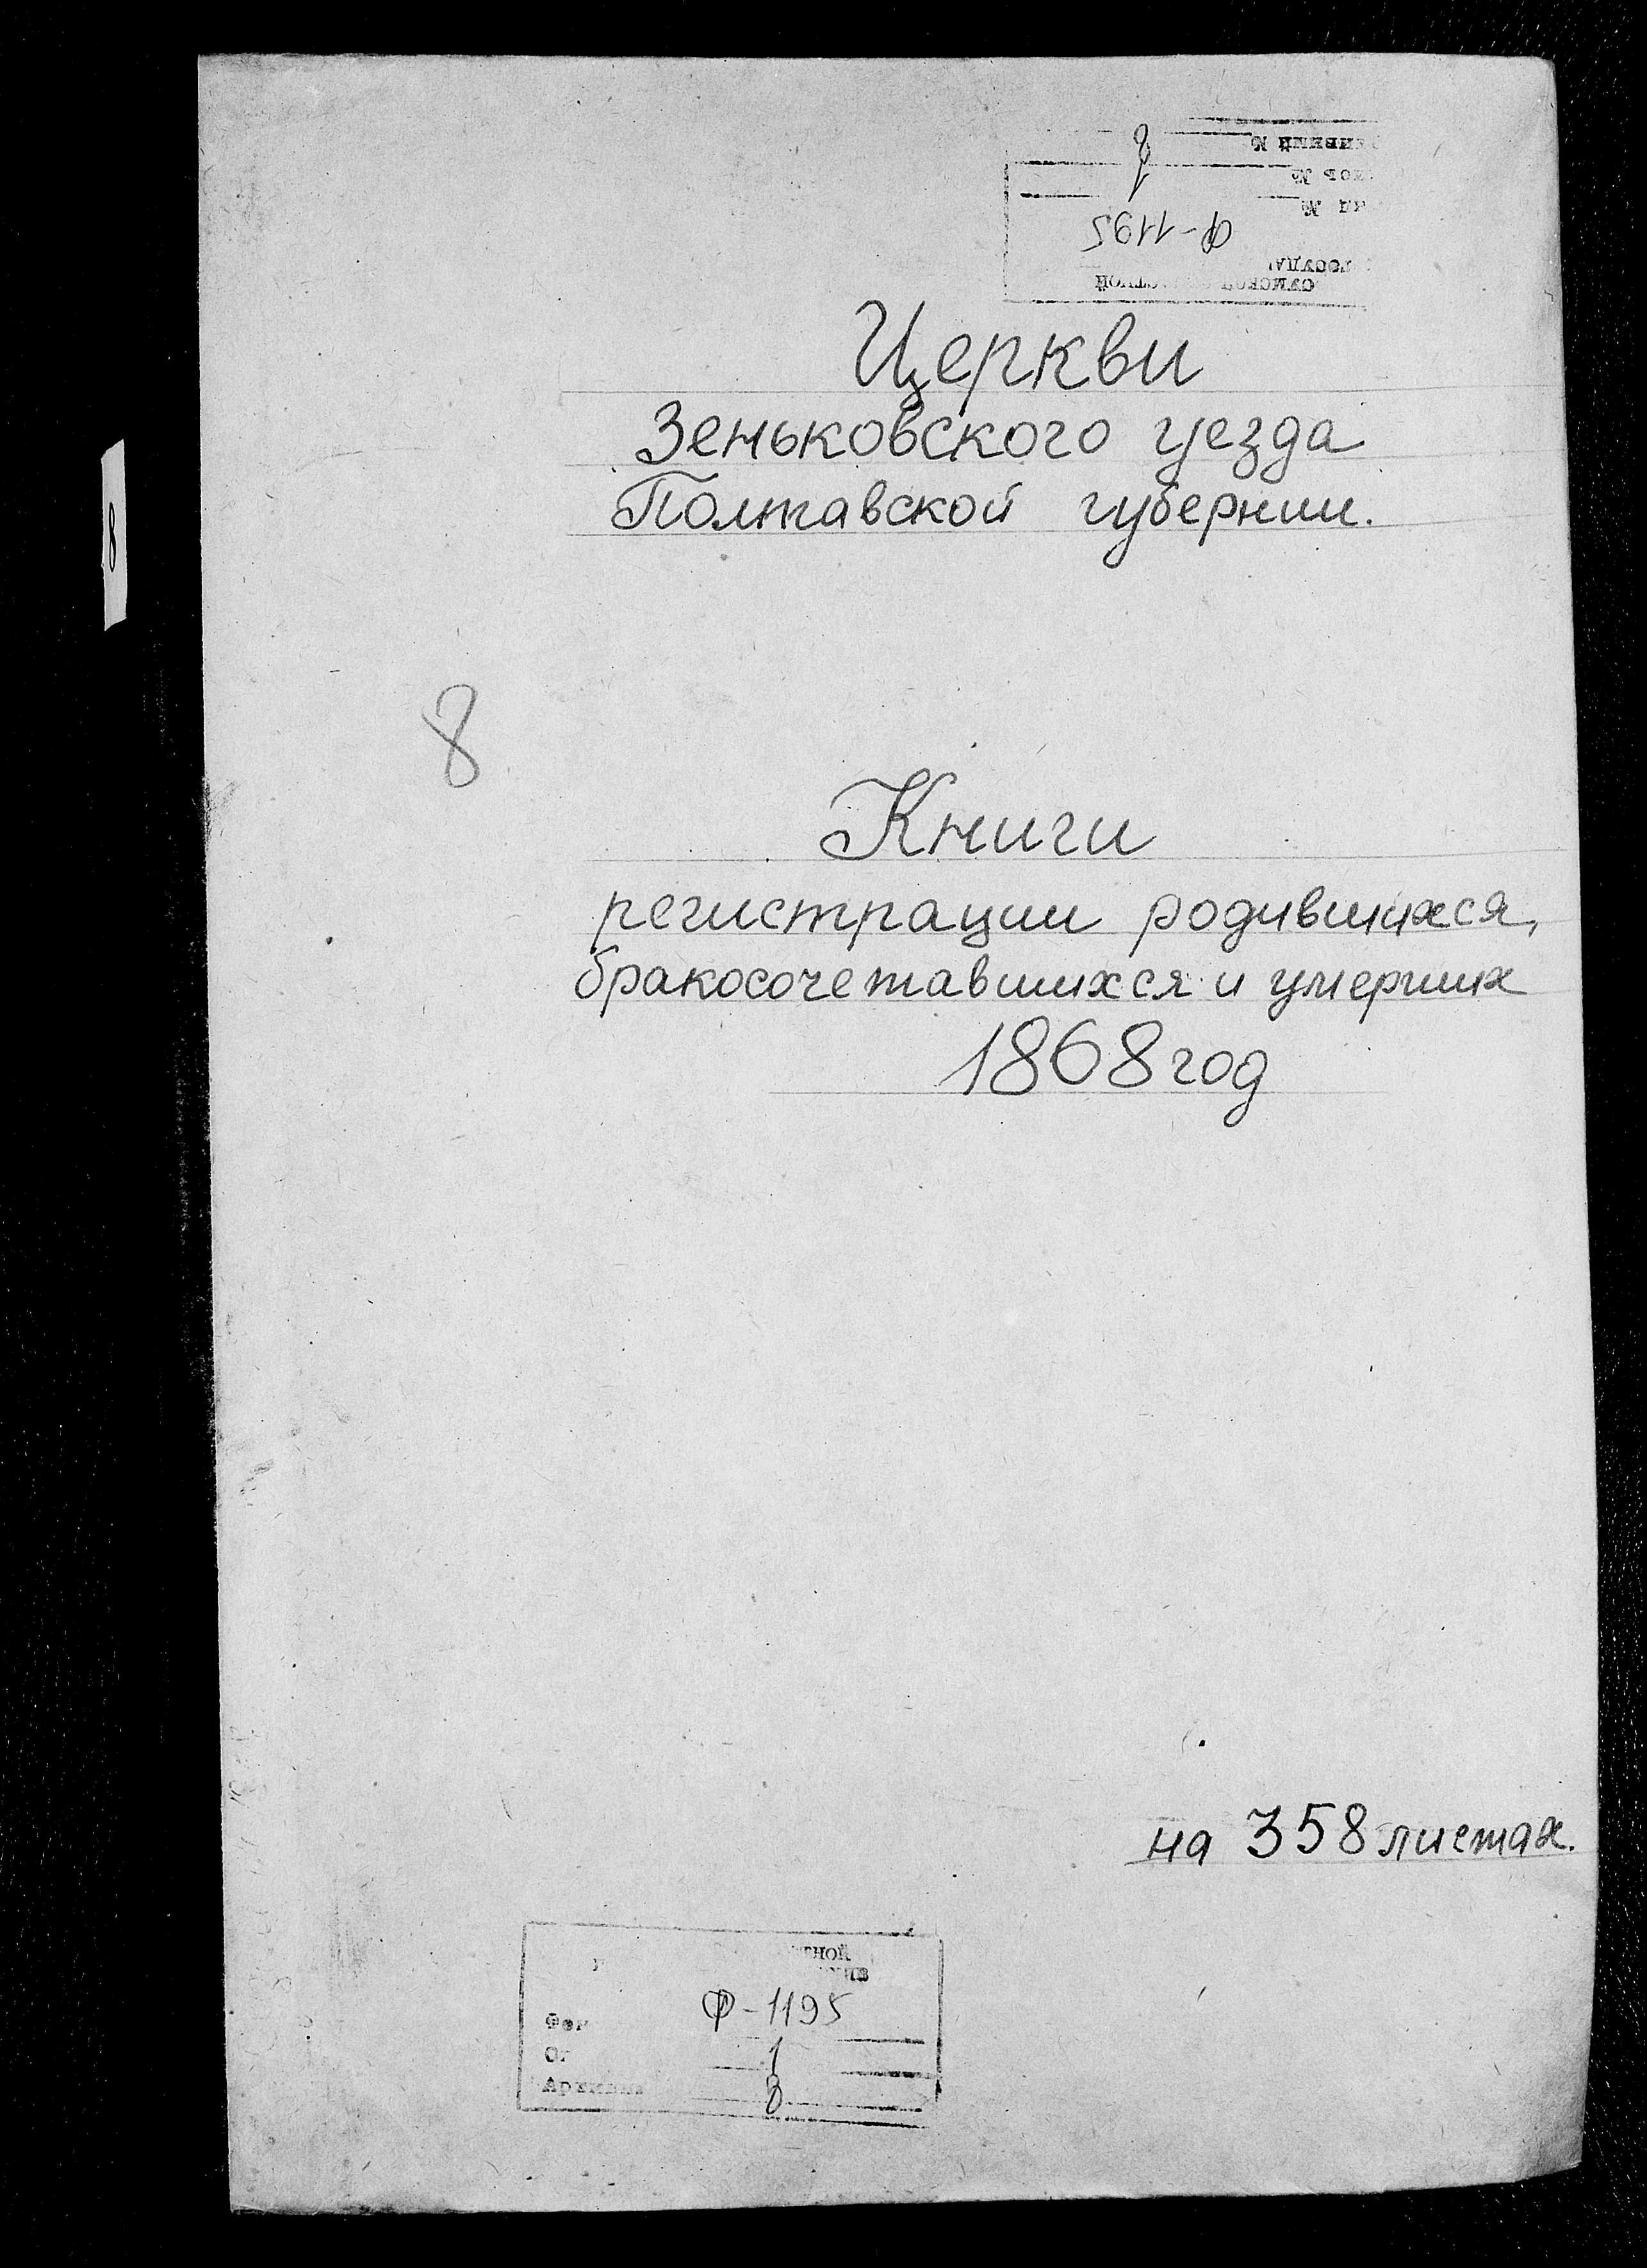 СУМСКОЙ
Ф-1195
1
8
Церкви
Зеньковского уезда
Полтавской губернии.
8
8
Книги
регистрации родившихся,
бракосочетавшихся и умерших
1868 год
на 358 листах.
Ф-1195
1
8